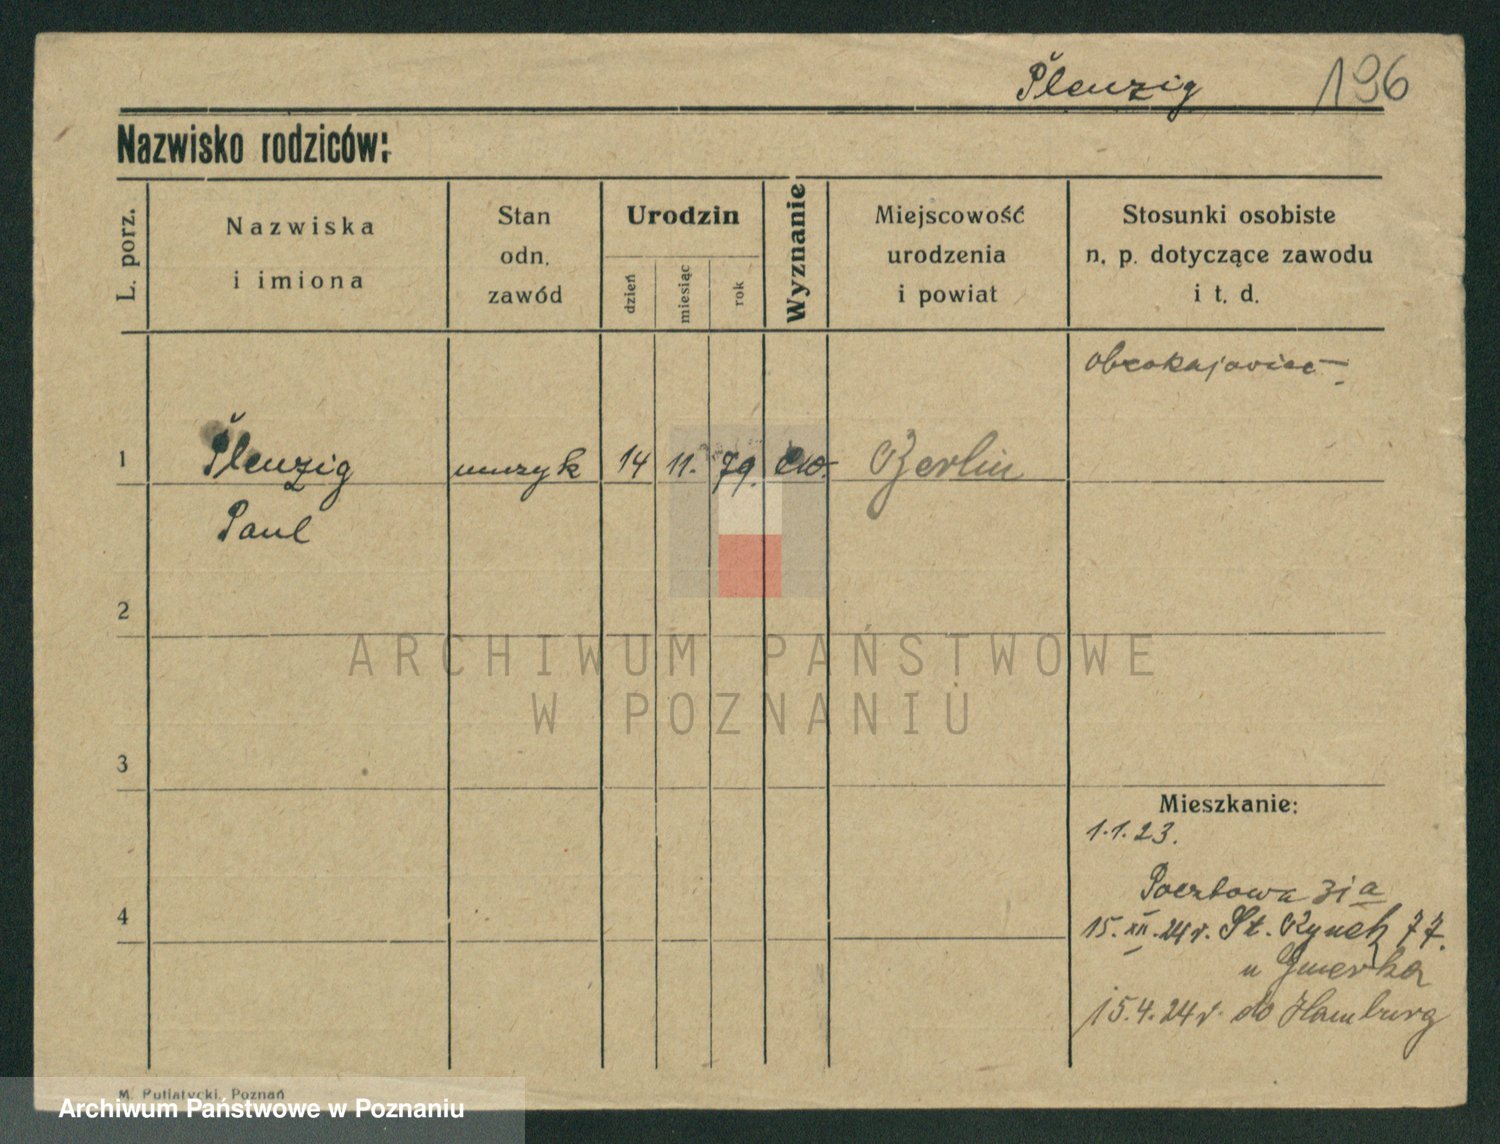 Plenzig 196
Nazwisko rodziców:
L. porz.
Nazwiska
i imiona
Stan
odn.
zawód
Urodzin
dzień
miesiąc
rok
Wyznanie
Miejscowość
urodzenia
i powiat
Stosunki osobiste
n. p. dotyczące zawodu
i t. d.
obcokrajowiec
1 Plenzig muzyk 14 11. 79. ew. Berlin
Paul
2
3
ARCHIWUM PAŃSTWOWE
W POZNANIU
Mieszkanie:
1.1.23.
Pocztowa 31a
4
15.XII.24r. St. Rynek 77.
u
15.4.24r. do Hamburg
M. Putiatycki, Poznań
Archiwum Państwowe w Poznaniu